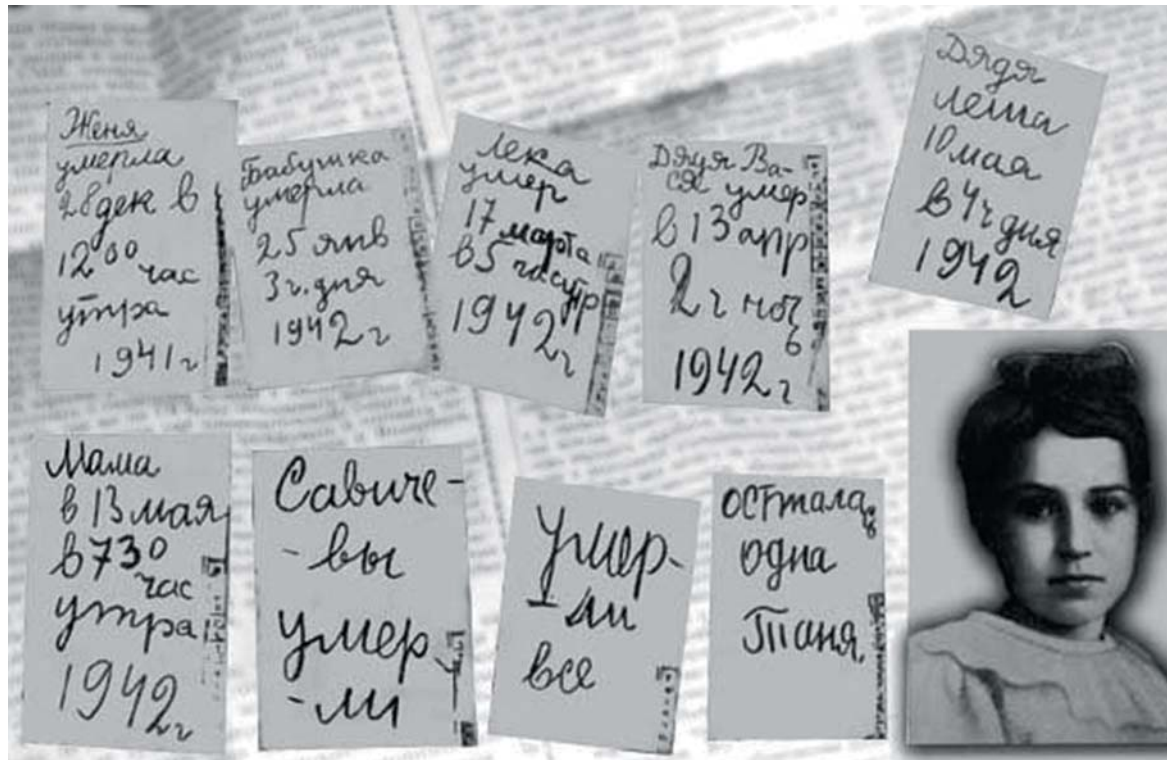 Женя
умерла
28 дек в
12 00 час
утра
1941 г
Бабушка
умерла
25 янв
3 ч. дня
1942 г
Лека
умер
17 марта
в 5 час утр
1942 г
Дядя Ва-
ся умер
в 13 апр
2 ч ночь
1942 г
Дядя
Леша
10 мая
в 4 ч дня
1942
Мама
в 13 мая
в 7 30
час
утра
1942 г
Савиче-
-вы
умер
-ли
Умер-
ли
все
Осталась
одна
Таня.